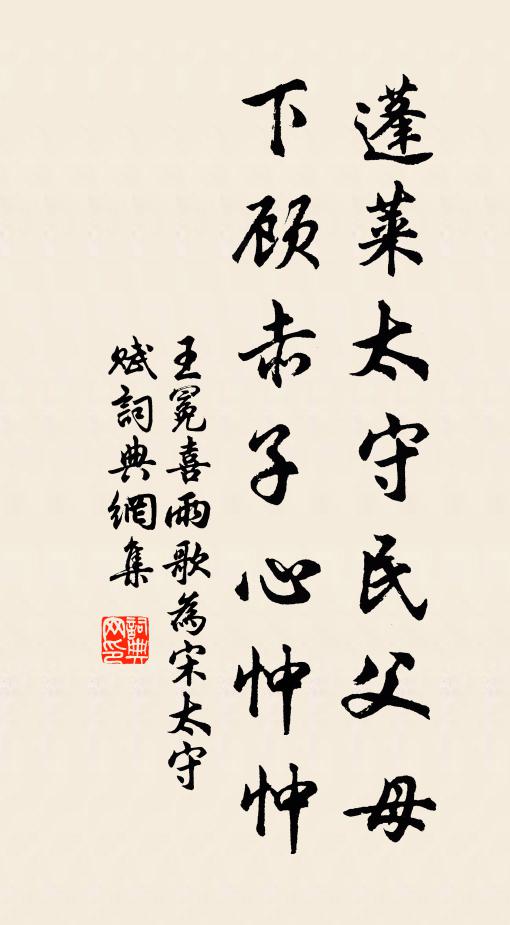 蓬萊太守民父母
下顾赤子心忡忡
王冕喜雨歌為宋太守
赋詞典網集
詞典网印